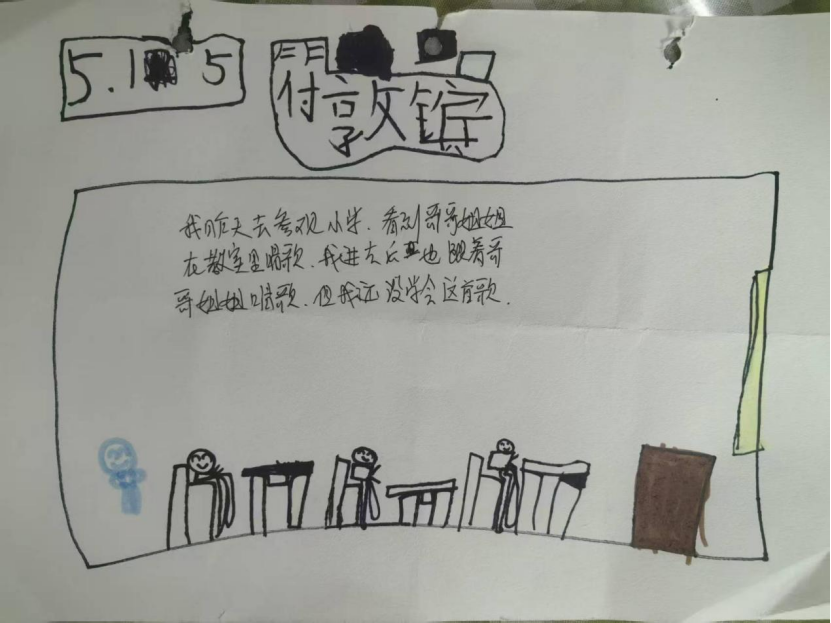 5.1 5
符敦镔
我昨天去参观小学，看到哥哥姐姐
在教室里唱歌，我进去后也跟着哥
哥姐姐唱歌，但我还没学会这首歌.